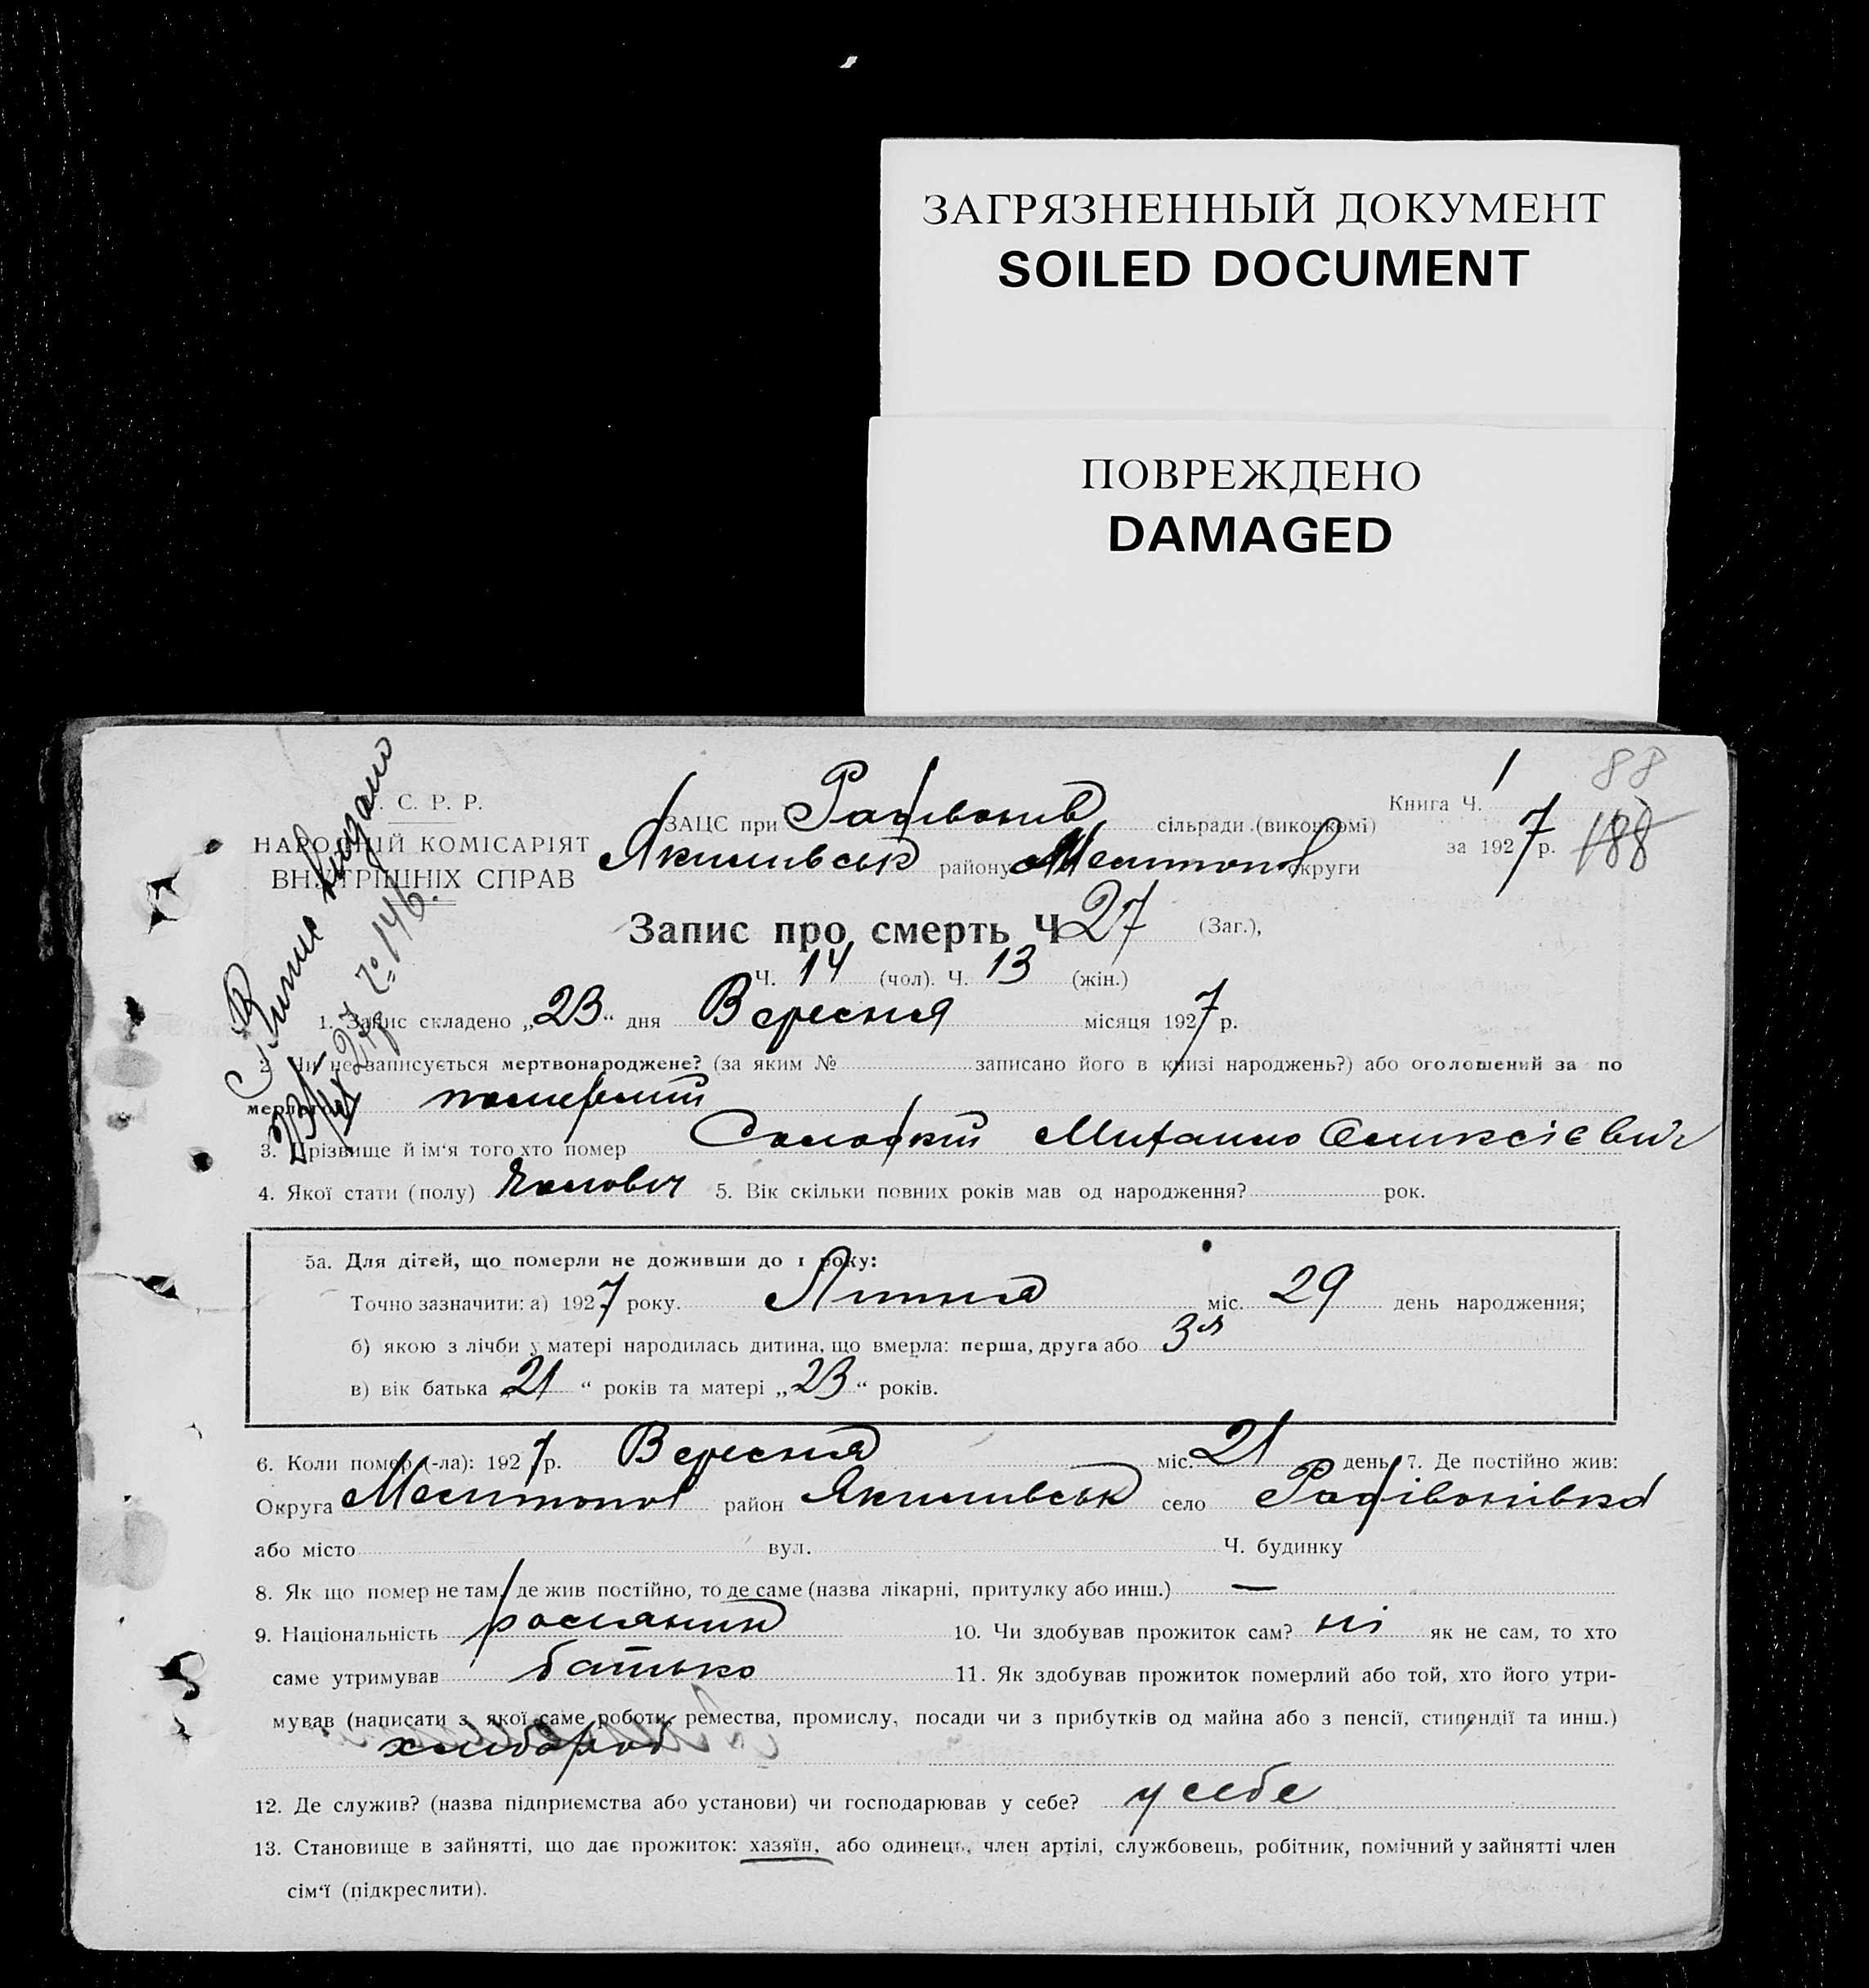 ЗАГРЯЗНЕННЫЙ ДОКУМЕНТ
SOILED DOCUMENT
ПОВРЕЖДЕНО
DAMAGED
88
188
. С. Р. Р.
НАРОДНІЙ КОМІСАРІЯТ
ВНУТРІШНІХ СПРАВ
видано
№ 146.
ЗАЦС при сільради (виконкомі)
Книга Ч. 1
за 1927 р.
Якимивськ району Мелитопол округи
Запис про смерть Ч 27 (Заг.),
Ч. 14 (чол). Ч. 13 (жін.)
1. Запис складено „23“ дня Вересня місяця 1927 р.
2. Чи не записується мертвонароджене? (за яким № записано його в книзі народжень?) або оголошений за по
мерлого? померлий
3. Прізвище й ім'я того хто помер Михайло Оликсієвич
4. Якої стати (полу) Чолович 5. Вік скільки повних років мав од народження? рок.
5а. Для дітей, що померли не доживши до 1 року:
Точно зазначити: а) 1927 року. Липня міс. 29 день народження;
б) якою з лічби у матері народилась дитина, що вмерла: перша, друга або 3я
в) вік батька „21“ років та матері „23“ років.
6. Коли помер (-ла): 1927 р. Вересня міс. 21 день 7. Де постійно жив:
Округа Мелитопол район Якимивськ село Радівонівка
або місто вул. Ч. будинку
8. Як що помер не там, де жив постійно, то де саме (назва лікарні, притулку або инш.) —
9. Національність росиянин 10. Чи здобував прожиток сам? ні як не сам, то хто
саме утримував батько 11. Як здобував прожиток померлий або той, хто його утри-
мував (написати з якої саме роботи, ремества, промислу, посади чи з прибутків од майна або з пенсії, стипендії та инш.)
хлибороб
12. Де служив? (назва підприємства або установи) чи господарював у себе? у себе
13. Становище в зайнятті, що дає прожиток: хазяїн, або одинець, член артілі, службовець, робітник, помічний у зайнятті член
сім'ї (підкреслити).